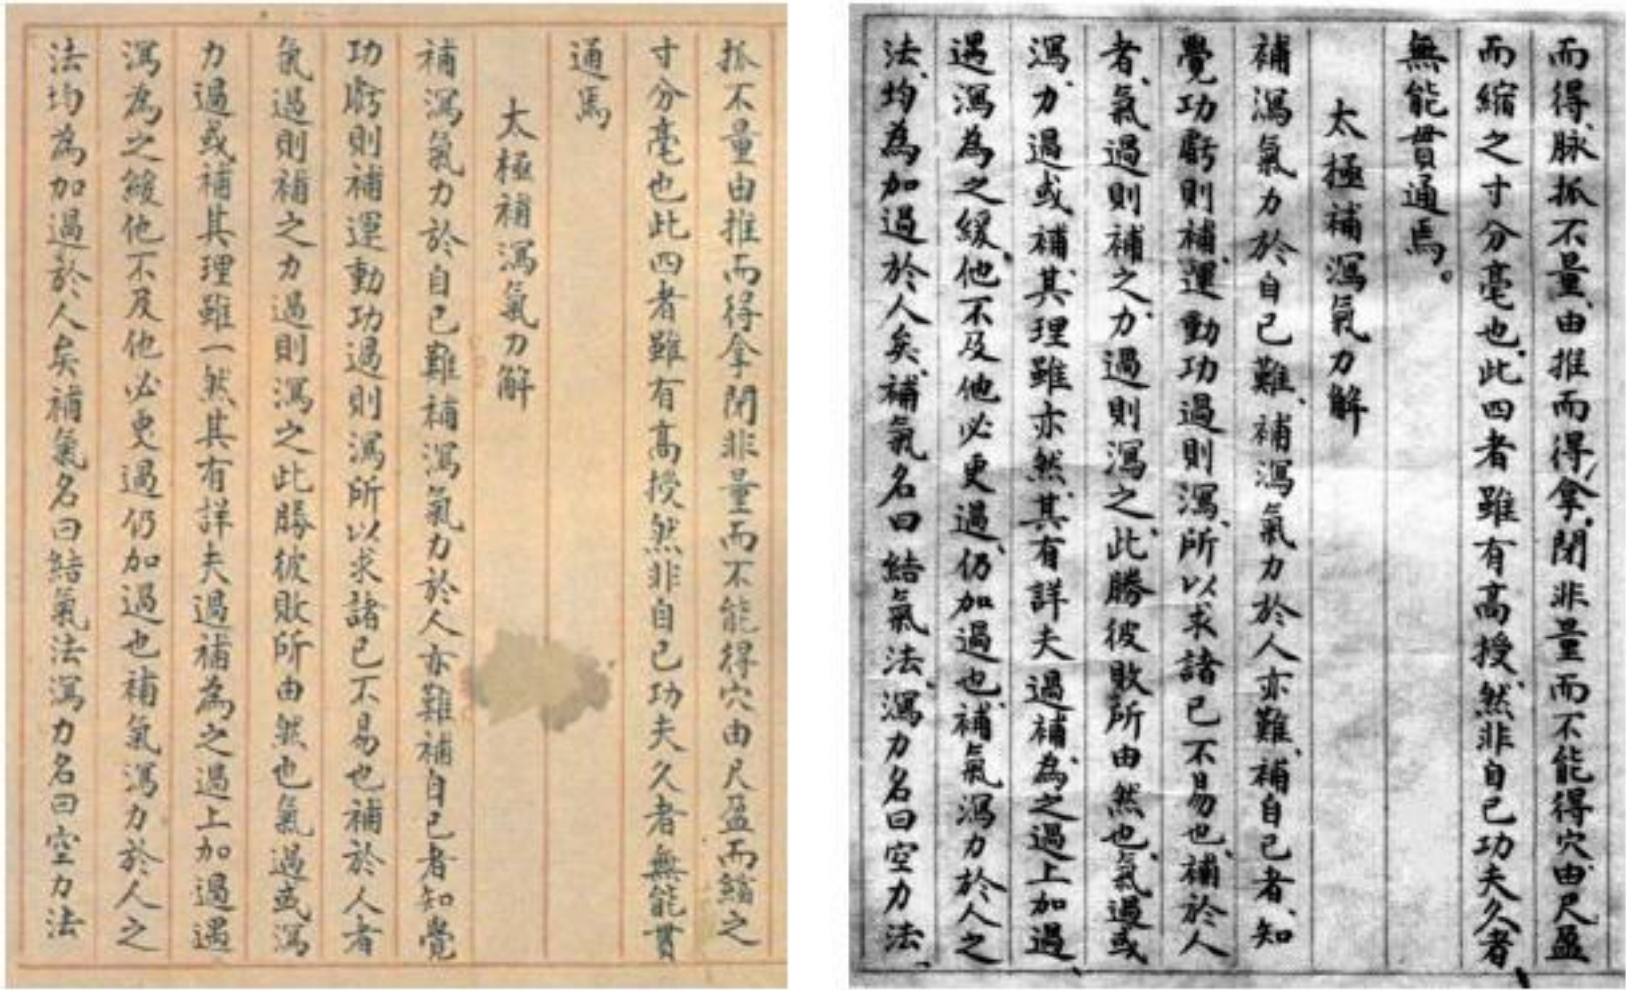 抓不量由推而得拿閉非量而不能得穴由尺盈而縮之
寸分毫也此四者雖有高授然非自己功夫久者無能貫
通焉
太極補瀉氣力解
補瀉氣力於自己難補瀉氣力於人亦難補自己者知覺
功虧則補運動功過則瀉所以求諸己不易也補於人者
氣過則補之力過則瀉之此勝彼敗所由然也氣過或瀉
力過或補其理雖一然其有詳夫過補為之過上加過遇
瀉為之緩他不及他必更過仍加過也補氣瀉力於人之
法均為加過於人矣補氣名曰結氣法瀉力名曰空力法
而得、脉抓不量、由推而得、拿、閉非量而不能得穴、由尺盈
而縮之寸分毫也、此四者雖有高授、然非自己功夫久者、
無能貫通焉。
太極補瀉氣力解
補瀉氣力於自己難、補瀉氣力於人亦難、補自己者、知
覺功虧則補、運動功過則瀉、所以求諸己不易也、補於人
者、氣過則補之、力過則瀉之、此勝彼敗所由然也、氣過或
瀉、力過或補、其理雖亦然、其有詳夫過補、為之過上加過、
遇瀉為之緩、他不及他必更過、仍加過也、補氣瀉力於人之
法、均為加過於人矣、補氣名曰結氣法、瀉力名曰空力法、